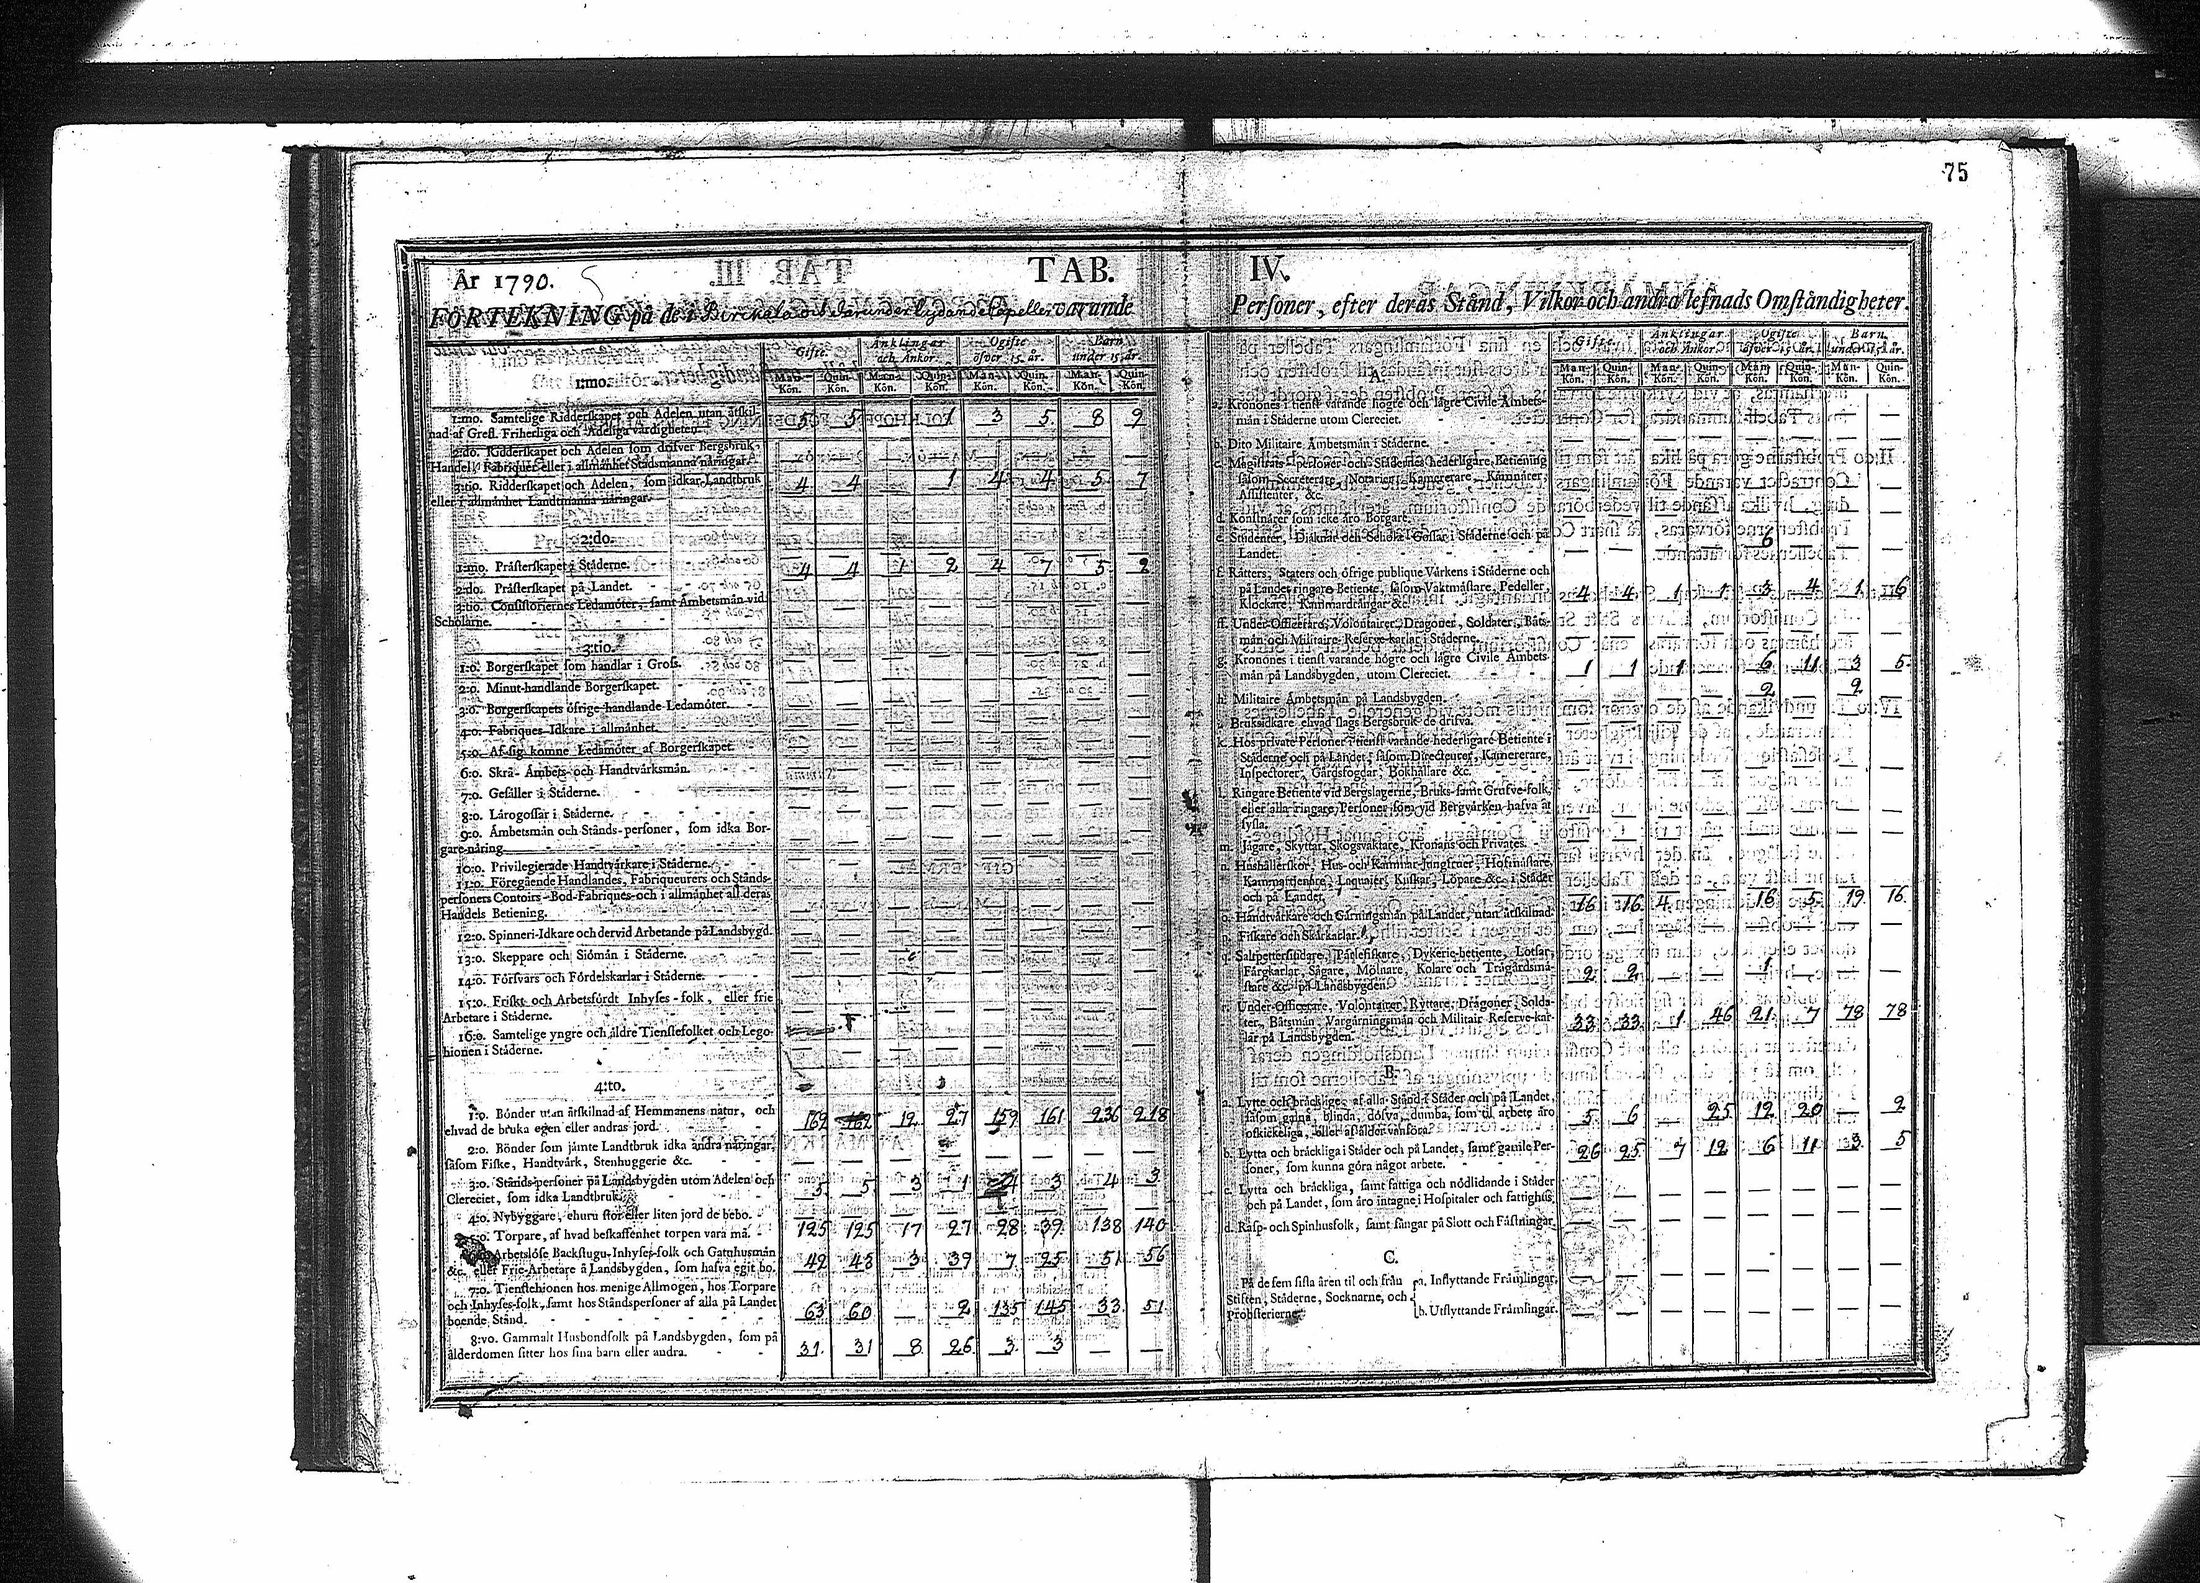 75
År 1790.
TAB. IV.
FÖRTEKNING på de i Birckala och därunder lydande Capeller varande Personer, efter deras Stånd, Vilkor och andra lefnads Omståndigheter.
Gifte. Änklingar och Änkor. Ogifte öfver 15. år. Barn under 15. år.
Man-Kön. Quin-Kön. Man-Kön. Quin-Kön. Man-Kön. Quin-Kön. Man-Kön. Quin-Kön.
1:mo.
1:mo. Samtelige Ridderskapet och Adelen utan åtskil-
nad af Grefl. Friherliga och Adeliga vårdigheter. 5 5 1 3 5. 8 9
2:do. Ridderskapet och Adelen som drifver Bergsbruk,
Handel, Fabriquer eller i allmånhet Stadsmanna nåringar.
3:tio. Ridderskapet och Adelen, som idkar Landtbruk
eller i allmånhet Landtmanna nåringar. 4 4 1 4 4 5. 7
2:do.
1:mo. Pråsterskapet i Ståderne. 4 4 1 2 4 7 5. 2
2:do. Pråsterskapet på Landet.
3:tio. Consistoriernes Ledamöter, samt Åmbetsmån vid
Scholarne.
3:tio.
1:o. Borgerskapet som handlar i Gross.
2:o. Minut-handlande Borgerskapet.
3:o. Borgerskapets öfrige handlande Ledamöter.
4:o. Fabriques-Idkare i allmånhet.
5:o. Af sig komne Ledamöter af Borgerskapet.
6:o. Skrå- Åmbets- och Handtvårksmån.
7:o. Gesåller i Ståderne.
8:o. Lårogossar i Ståderne.
9:o. Åmbetsmån och Stånds-personer, som idka Bor-
gare-nåring.
10:o. Privilegierade Handtvårkare i Ståderne.
11:o. Föregående Handlandes, Fabriqueurers och Stånds-
personers Contoirs- Bod-Fabriques- och i allmånhet all deras
Handels Betiening.
12:o. Spinneri-Idkare och dervid Arbetande på Landsbygd.
13:o. Skeppare och Siömån i Ståderne.
14:o. Försvars och Fördelskarlar i Ståderne.
15:o. Friskt och Arbetsfördt Inhyses-folk, eller frie
Arbetare i Ståderne.
16:o. Samtelige yngre och åldre Tienstefolket och Lego-
hionen i Ståderne.
4:to.
1:o. Bönder utan åtskilnad af Hemmanens natur, och
ehvad de bruka egen eller andras jord. 162 162 12 27 159 161 236 218
2:o. Bönder som jåmte Landtbruk idka andra nåringar,
såsom Fiske, Handtvårk, Stenhuggerie &c.
3:o. Stånds-personer på Landsbygden utom Adelen och
Clereciet, som idka Landtbruk. 5. 5 3 1 4 3 4 3
4:o. Nybyggare, ehuru stor eller liten jord de bebo.
5:o. Torpare, af hvad beskaffenhet torpen vara må. 125 125 17 27 28 39. 138 140
Arbetslöse Backstugu-Inhyses-folk och Gatuhusmån
&c. eller Frie-Arbetare å Landsbygden, som hafva eget bo. 42 43 3 39 7 25 51 56
7:o. Tienstehionen hos menige Allmogen, hos Torpare
och Inhyses-folk, samt hos Ståndspersoner af alla på Landet
boende Stånd. 63 60 2 135 145 33 51
8:vo. Gammalt Husbondfolk på Landsbygden, som på
ålderdomen sitter hos sina barn eller andra. 31. 31 8 26 3 3
Gifte. Änklingar och Änkor. Ogifte öfver 15. år. Barn under 15. år.
Man-Kön. Quin-Kön. Man-Kön. Quin-Kön. Man-Kön. Quin-Kön. Man-Kön. Quin-Kön.
A.
a. Kronones i tienst varande högre och lågre Civile Åmbets-
mån i Ståderne utom Clereciet.
b. Dito Militaire Åmbetsmån i Ståderne.
c. Magistrats-personer och Stådernes hederligare Betiening
såsom Secreterare, Notarier, Kamererare, Kamnårer,
Assistenter, &c.
d. Konstnårer som icke åro Borgare.
e. Studenter, Djåknar och Schole Gossar i Ståderne och på
Landet. 6
f. Råtters, Staters och öfrige publique Vårkens i Ståderne och
på Landet ringare Betiente, såsom Vaktmåstare, Pedeller,
Klockare, Kammardrångar &c. 4 4 1 1 3 4 1 6
ff. Under-Officerare, Volontairer, Dragoner, Soldater, Båts-
mån och Militaire Reserve-karlar i Ståderne.
g. Kronones i tienst varande högre och lågre Civile Åmbets-
mån på Landsbygden, utom Clereciet. 1 1 1 6 11 3 5.
h. Militaire Åmbetsmån på Landsbygden. 2 2
i. Bruksidkare ehvad slags Bergsbruk de drifva.
k. Hos private Personer i tienst varande hederligare Betiente i
Ståderne och på Landet, såsom Directeurer, Kamererare,
Inspectorer, Gårdsfogdar, Bokhållare &c.
l. Ringare Betiente vid Bergslagerne, Bruks- samt Grufve-folk,
eller alla ringare Personer som vid Bergvårken hafva åt
syssla.
m. Jågare, Skyttar, Skogsvaktare, Kronans och Privates.
n. Hushållerskor, Hus- och Kammar-Jungfruer, Hofmåstare,
Kammartjenare, Laquaier, Kuskar, Löpare &c. i Ståder
och på Landet.
o. Handtvårkare och Gårningsmån på Landet, utan åtskilnad. 16 16 4 16 5 19. 16.
p. Fiskare och Skårkarlar.
q. Saltpettersiudare, Pårlefiskare, Dykerie-betiente, Lotsar,
Fårgkarlar, Sågare, Mölnare, Kolare och Trågårdsmå-
stare &c. på Landsbygden. 2 2 1
r. Under-Officerare, Volontairer, Ryttare, Dragoner, Solda-
ter, Båtsmån, Vargårningsmån och Militair Reserve-kar-
lar på Landsbygden. 33 33 1 46 21 7 78 78
B.
a. Lytte och bråcklige af alla Stånd i Ståder och på Landet,
såsom galna, blinda, döfva, dumba, som til arbete åro
oskickeliga, eller af ålder vanföra. 5 6 25 12 20 2
b. Lytta och bråckliga i Ståder och på Landet, samt gamle Per-
soner, som kunna göra något arbete. 26 25 7 12 6 11 3 5
c. Lytta och bråckliga, samt fattiga och nödlidande i Ståder
och på Landet, som åro intagne i Hospitaler och fattighus.
d. Rasp- och Spinhusfolk, samt fångar på Slott och Fåstningar.
C.
På de fem sista åren til och från a. Inflyttande Fråmlingar.
Stiften, Ståderne, Socknarne, och
Probsterierne b. Utflyttande Fråmlingar.